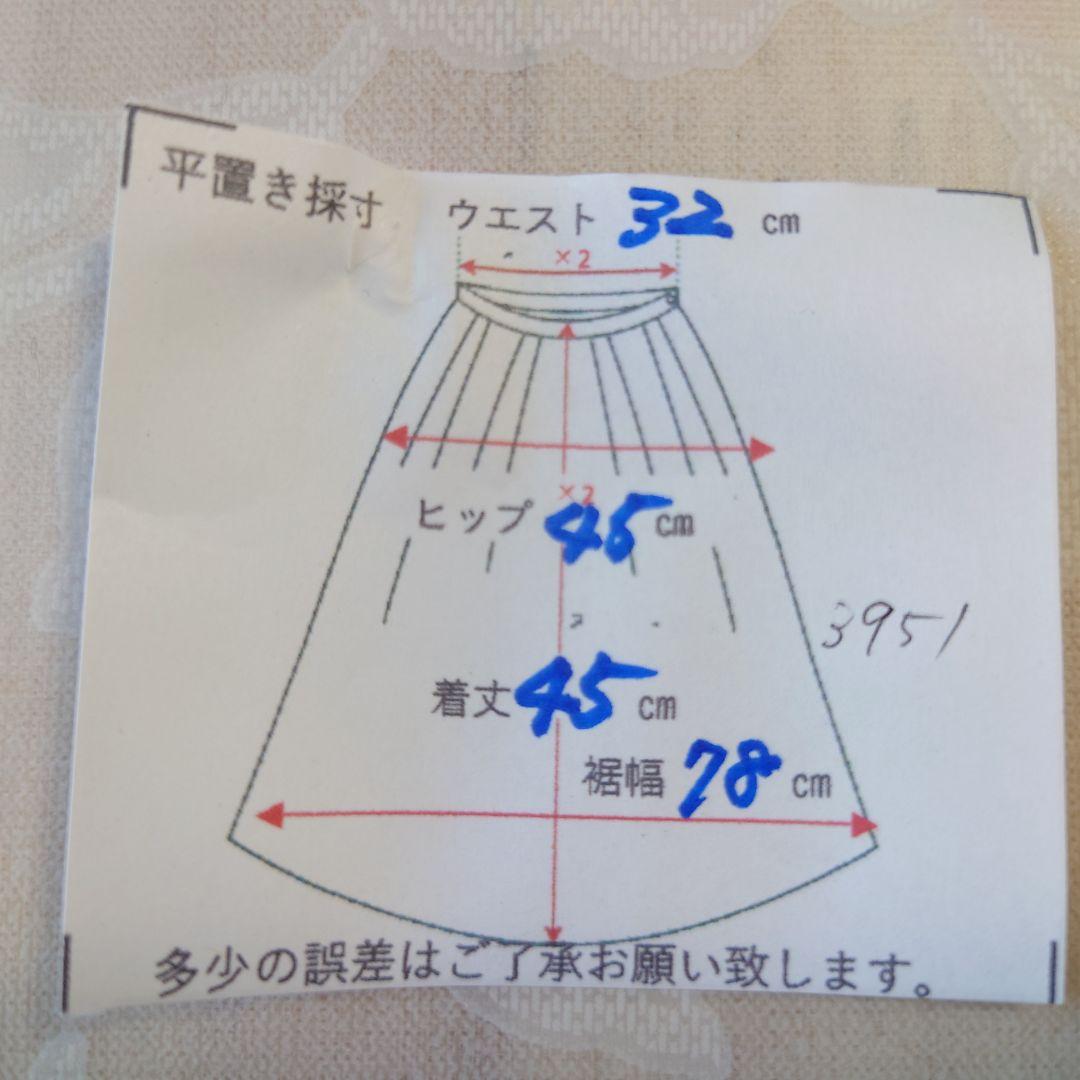 平置き採寸
ウエスト 32 cm
×2
×2
ヒップ 45 cm
3951
着丈 45 cm
裾幅 78 cm
多少の誤差はご了承お願い致します。